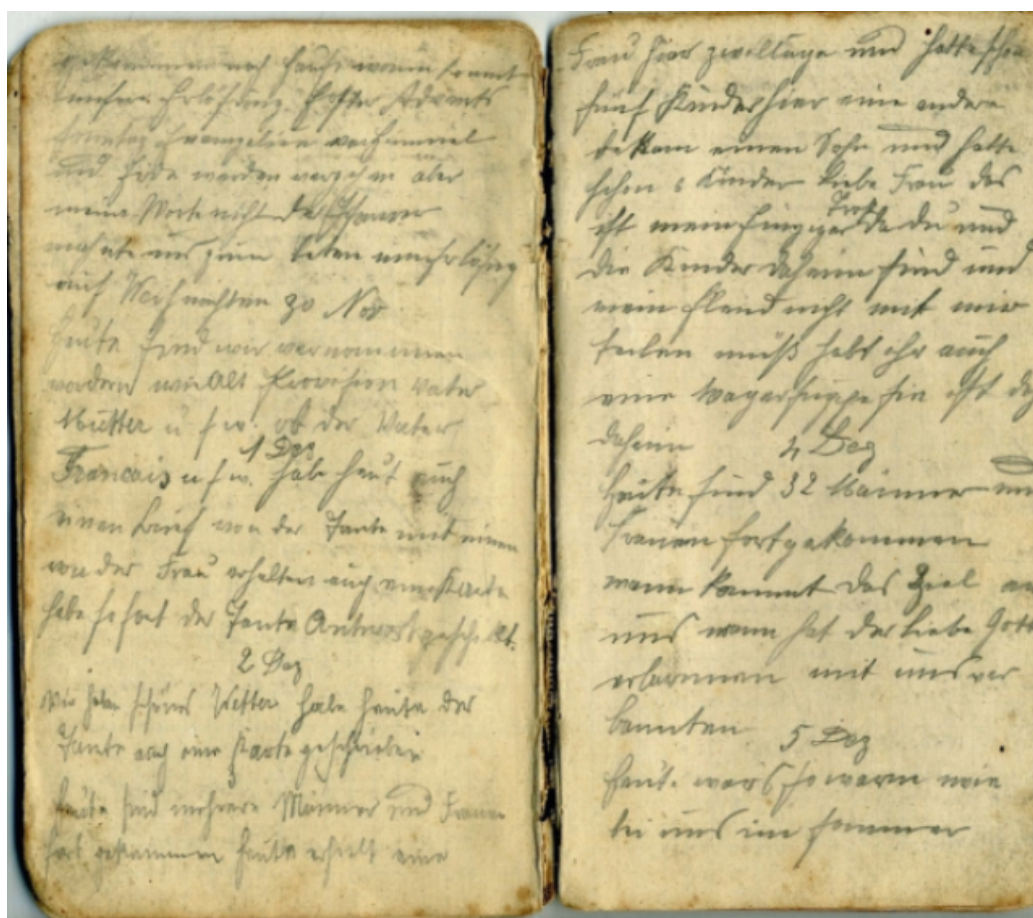 gekommen nach Hause wann kommt
unsere Erlösung. Erster Advents
sonntag Evangelium
und Erde werden vergehen aber
meine Worte nicht der Pfarrer
mahnte uns zum beten um Erlösung
auf Weihnachten 30 Nov
Heute sind wir vernommen
worden wie Alt Provision Vater
Mutter u s w. ob der Vater
1 Dez
Francais u s w. habe heut auch
einen Brief von der Tante und einen
von der Frau erhalten auch eine Karte
habe sofort der Tante Antwort geschickt.
2 Dez
Wir haben schönes Wetter habe heute der
Tante auch eine Karte geschrieben
Heute sind mehrere Männer und Frauen
fort gekommen heute erhielt eine
Frau hier zwillinge und hatte schon
fünf Kinder hier eine andere
bekam einen Sohn und hatte
schon 6 Kinder liebe Frau das
ist mein einziger Trost da du und
die Kinder daheim sind und
mein Elend nicht mit mir
teilen müß habt ihr auch
eine magersuppe sie ist do
daheim 4 Dez
Heute sind 32 Männer und
Frauen fortgekommen
wann kommt das Ziel an
uns wann hat der liebe Gott
erbarmen mit uns ver
bannten 5 Dez
Heute wars so warm wie
bei uns im Sommer